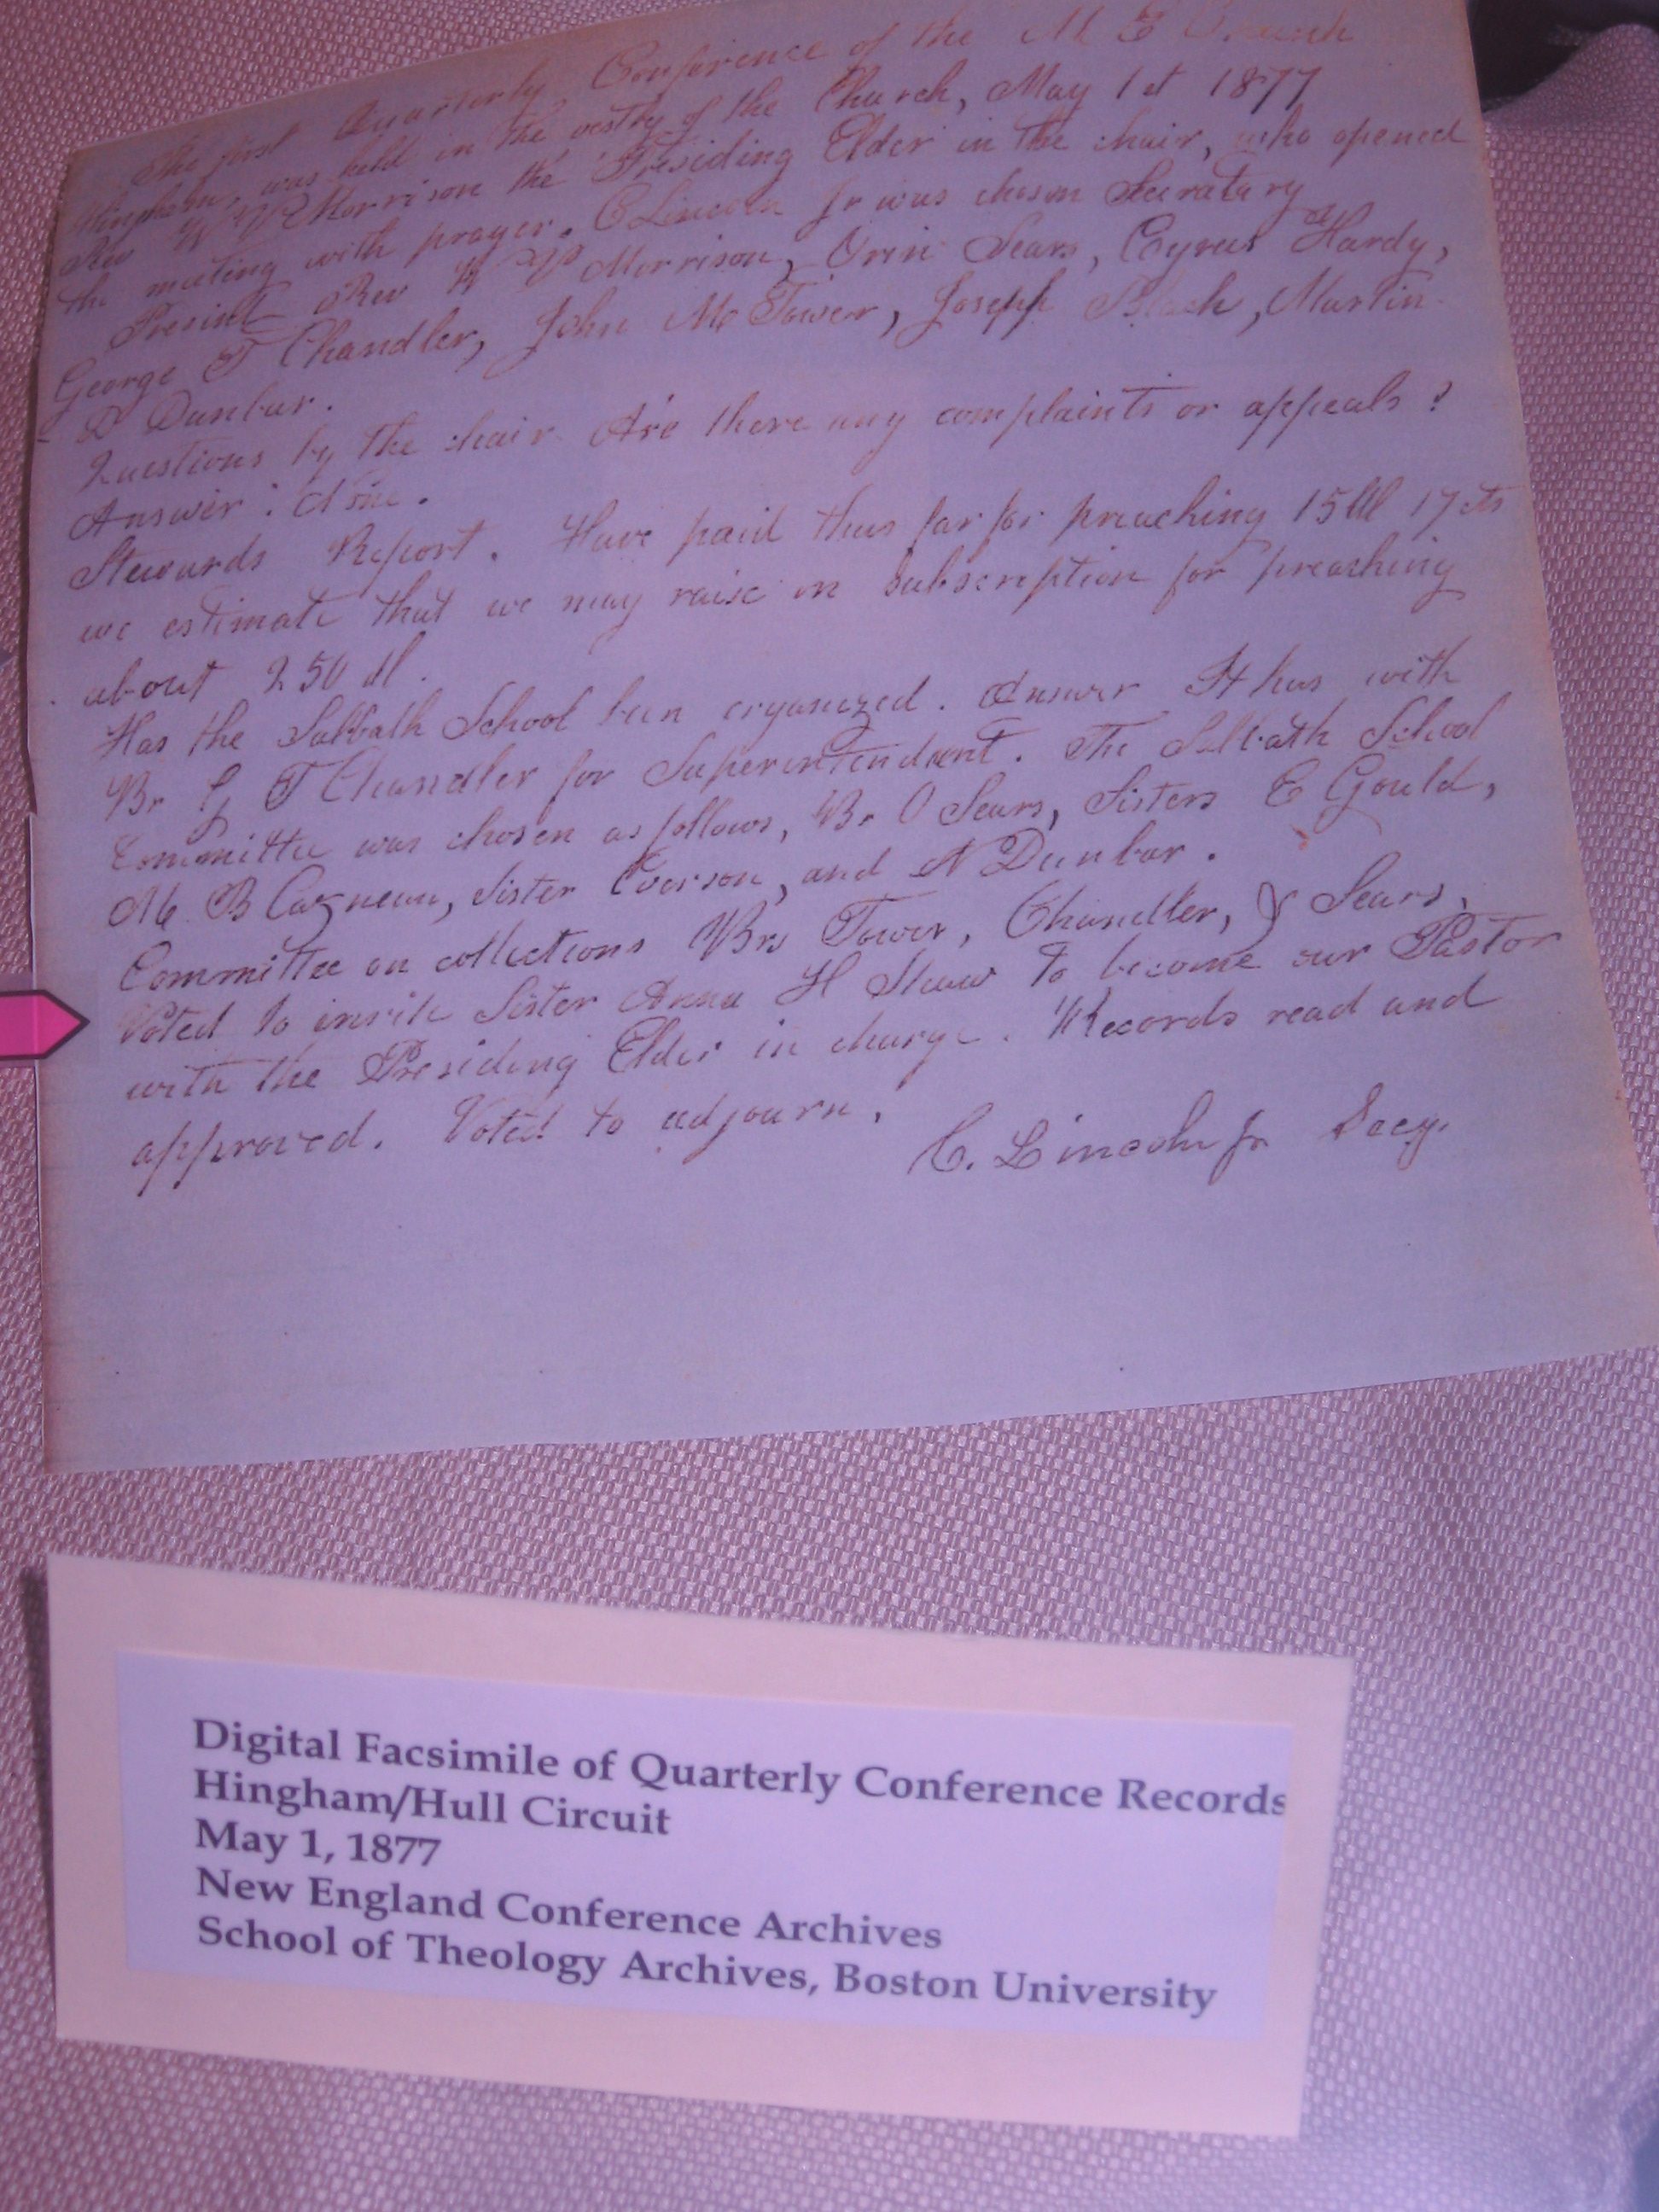 The first Quarterly Conference of the M E Church
Hingham, was held in the vestry of the Church, May 1st 1877
Rev W V Morrison the Presiding Elder in the chair, who opened
the meeting with prayer. C Lincoln Jr was chosen Secratary
Present Rev W V Morrison, Orin Sears, Cyrus Hardy,
George T Chandler, John M Tower, Joseph Black, Martin
D Dunbar.
Questions by the chair. Are there any complaints or appeals?
Answer: None.
Stewards Report. Have paid thus far for preaching 15 dll 17 cts
we estimate that we may raise on subscription for preaching
about 250 dl.
Has the Sabbath School been organized. Answer It has with
Br G T Chandler for Superintendent. The Sabbath School
Committee was chosen as follows, Br O Sears, Sisters E Gould,
M B Sister and N Dunbar.
Committee on collections Brs Tower, Chandler, & Sears.
Voted to invite Sister Anna H Shaw to become our Pastor
with the Presiding Elder in charge. Records read and
approved. Voted to adjourn.
C. Lincoln Jr Secy.
Digital Facsimile of Quarterly Conference Records
Hingham/Hull Circuit
May 1, 1877
New England Conference Archives
School of Theology Archives, Boston University